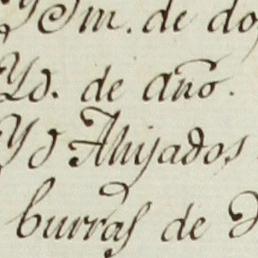 Ym. de do
Yd. de año.
Yd Ahijados
burras de